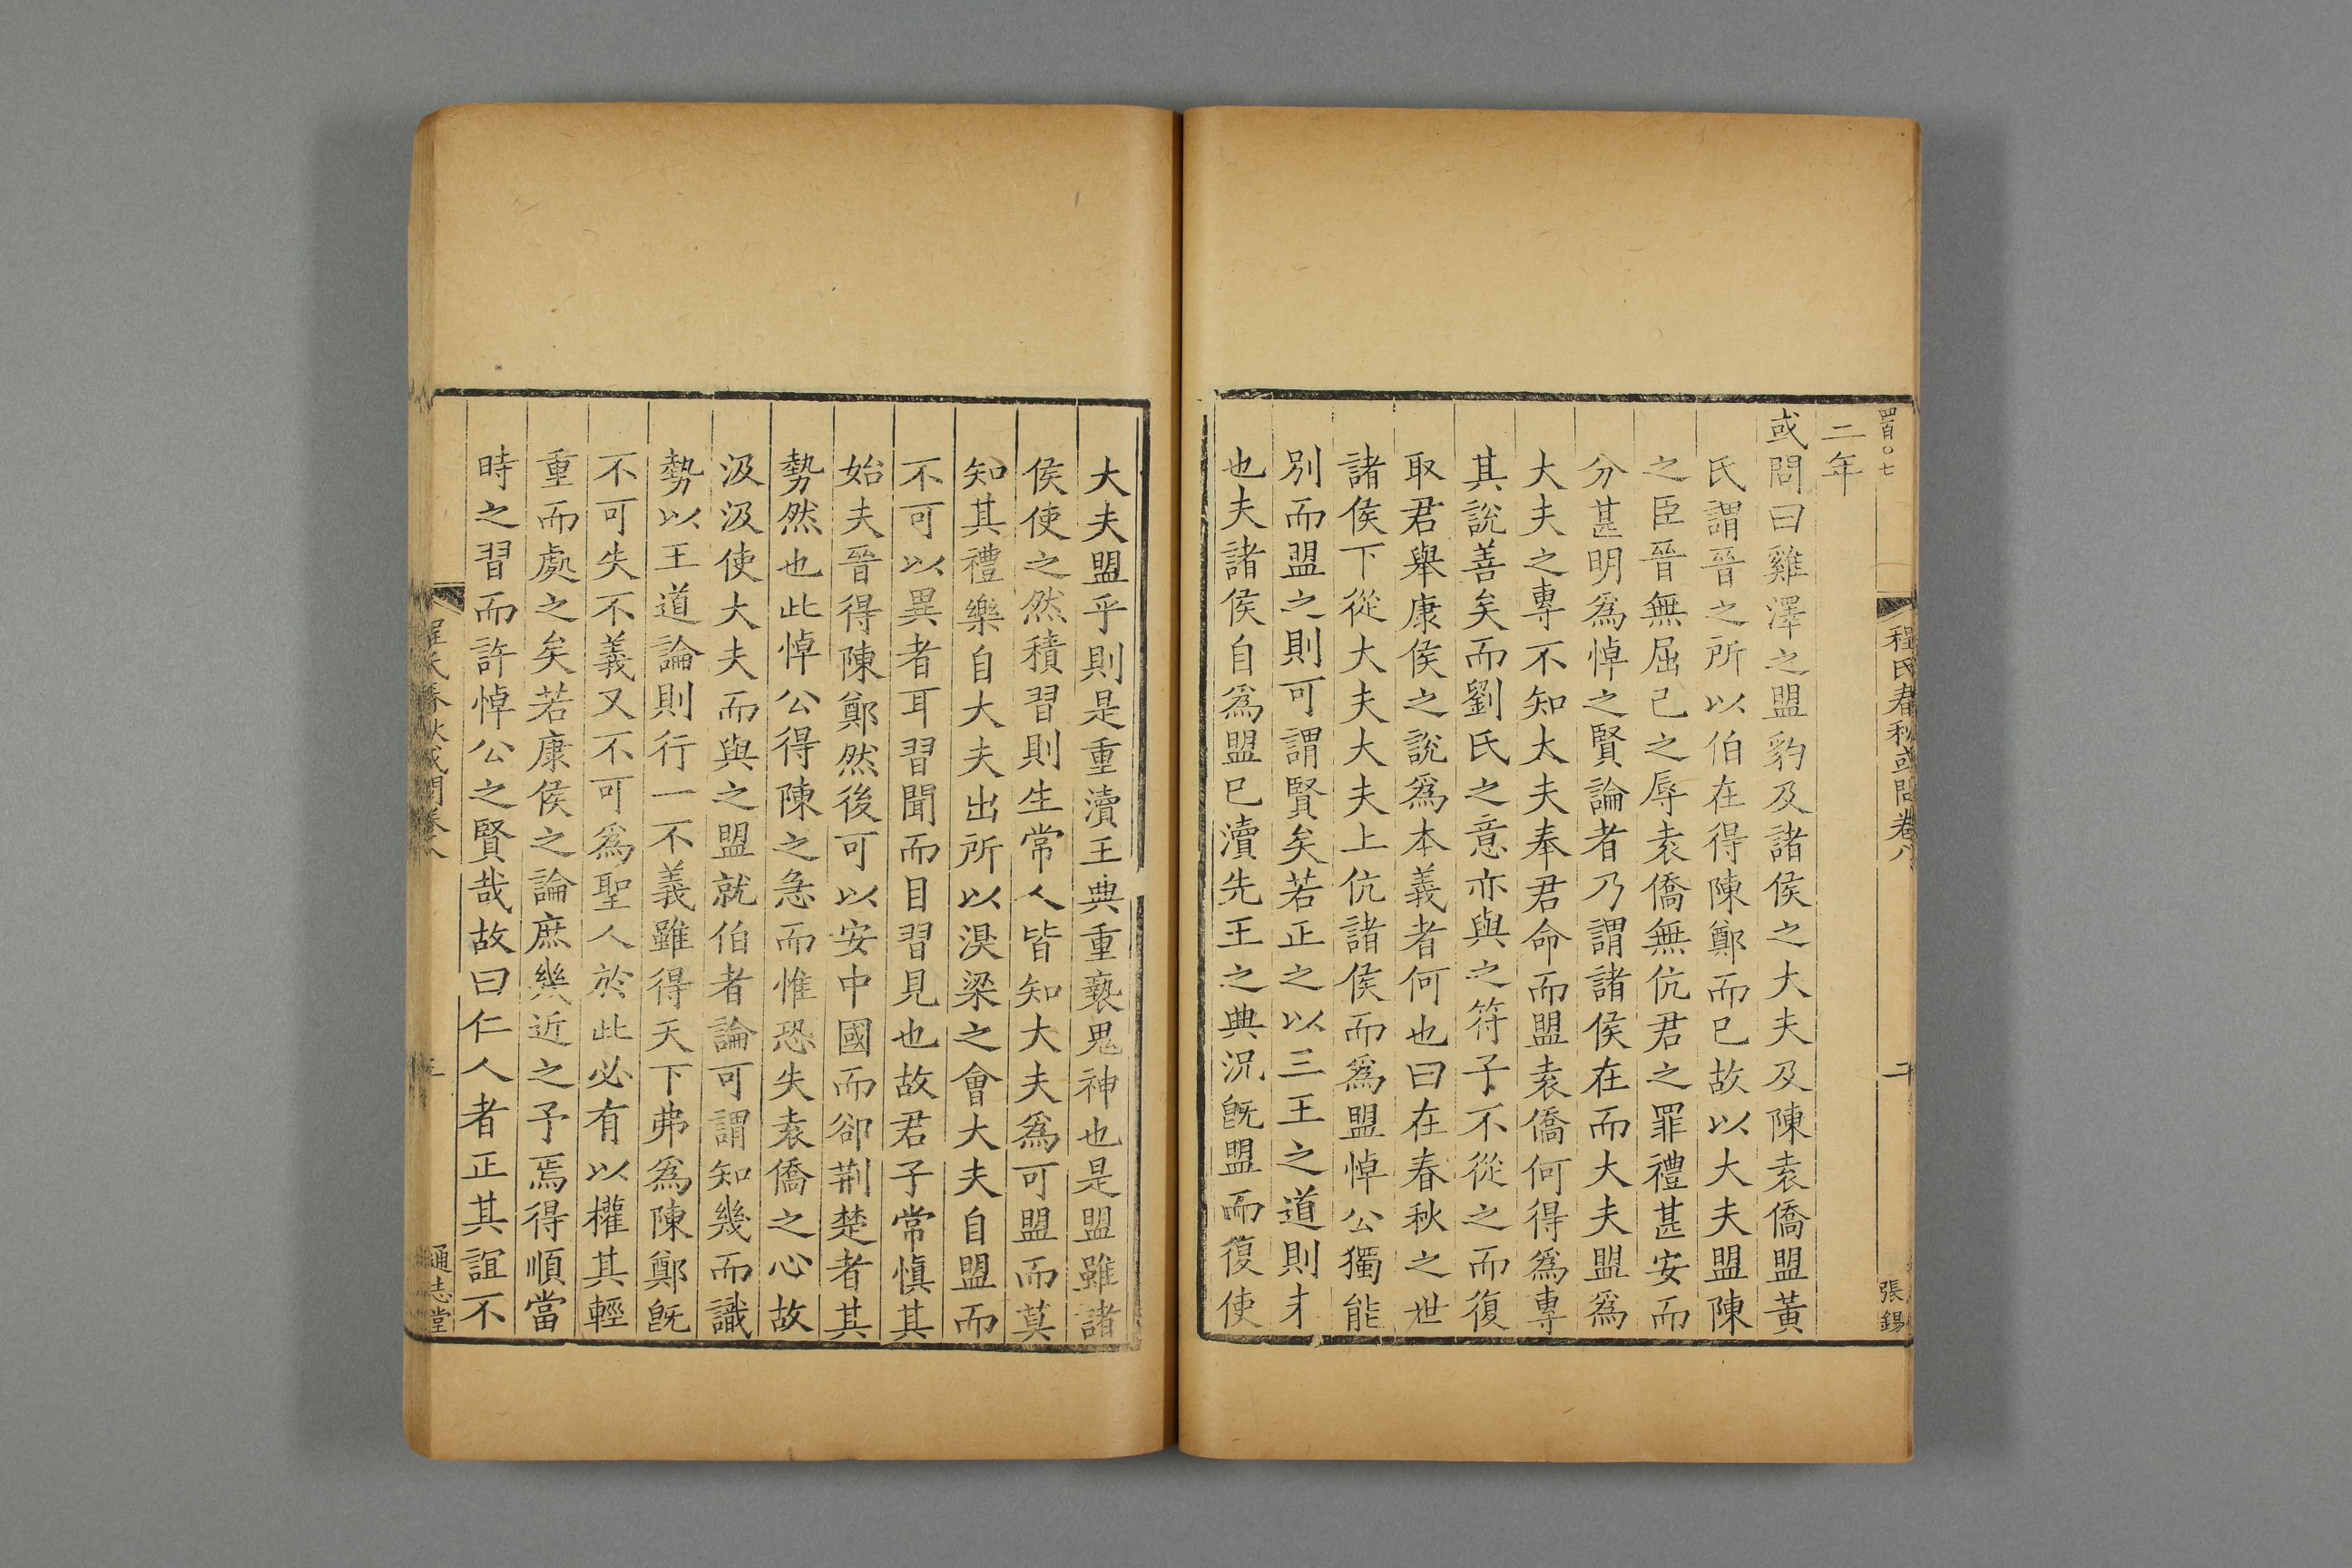 四百〇七
程氏春秋或問卷八
張錫
三年
或問曰雞澤之盟豹及諸侯之大夫及陳袁僑盟黃
氏謂晉之所以伯在得陳鄭而已故以大夫盟陳
之臣晉無屈己之辱袁僑無伉君之罪禮甚安而
分甚明爲悼之賢論者乃謂諸侯在而大夫盟爲
大夫之專不知大夫奉君命而盟袁僑何得爲專
其說善矣而劉氏之意亦與之符子不從之而復
取君舉康侯之說爲本義者何也曰在春秋之世
諸侯下從大夫大夫上伉諸侯而爲盟悼公獨能
別而盟之則可謂賢矣若正之以三王之道則未
也夫諸侯自爲盟已瀆先王之典況旣盟而復使
大夫盟乎則是重瀆王典重褻鬼神也是盟雖諸
侯使之然積習則生常人皆知大夫爲可盟而莫
知其禮樂自大夫出所以溴梁之會大夫自盟而
不可以異者耳習聞而目習見也故君子常愼其
始夫晉得陳鄭然後可以安中國而卻荆楚者其
勢然也此悼公得陳之急而惟恐失袁僑之心故
汲汲使大夫而與之盟就伯者論可謂知幾而識
勢以王道論則行一不義雖得天下弗爲陳鄭旣
不可失不義又不可爲聖人於此必有以權其輕
重而處之矣若康侯之論庶幾近之予焉得順當
時之習而許悼公之賢哉故曰仁人者正其誼不
程氏春秋或問卷八
通志堂